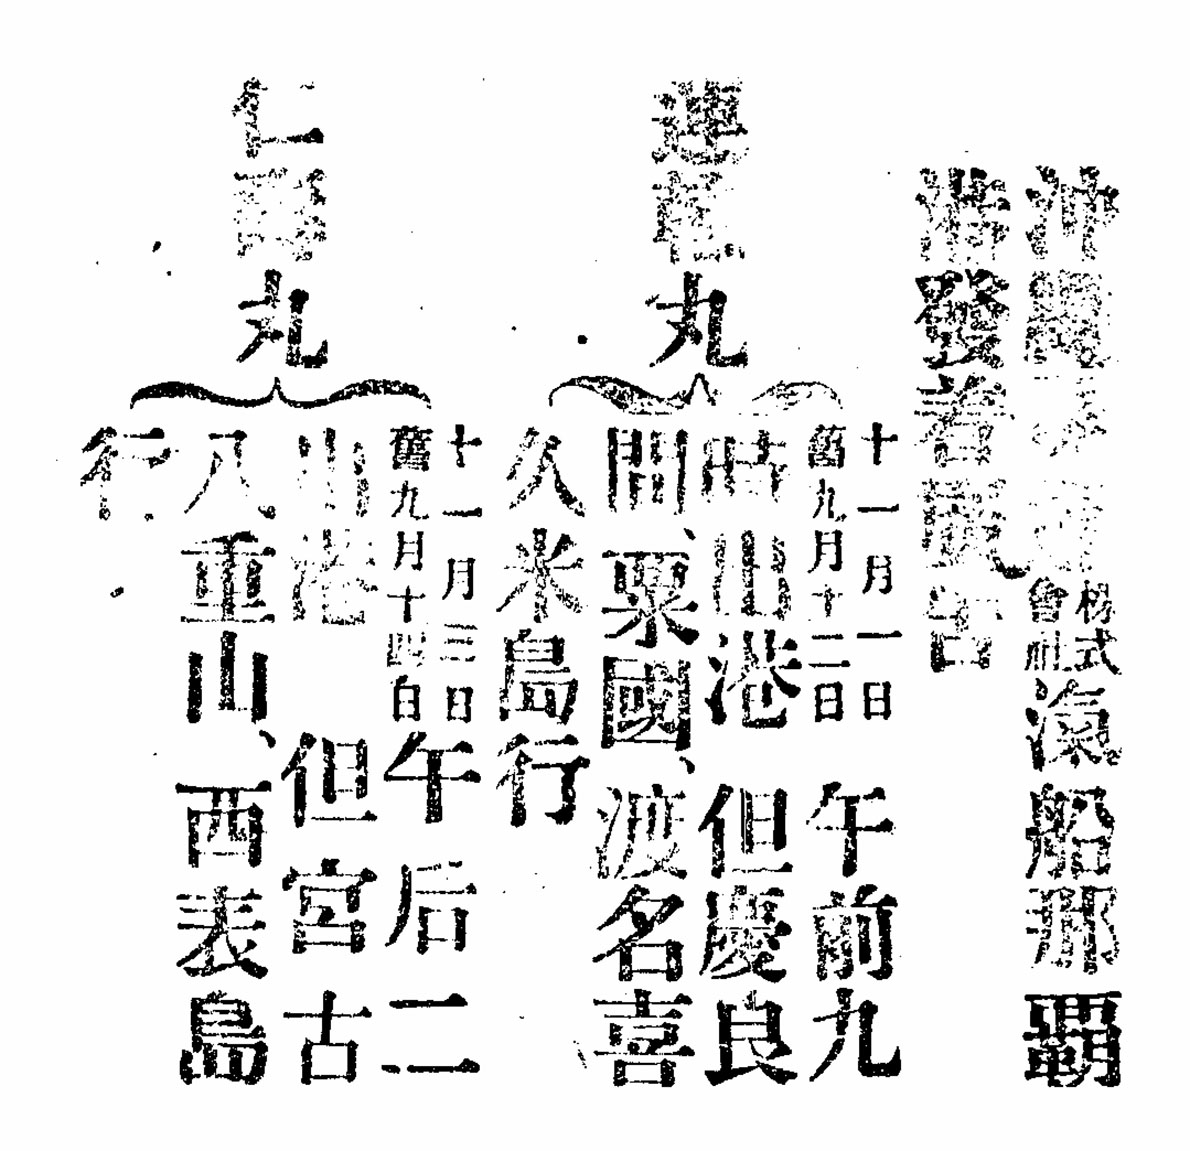 沖繩株式會社汽船那覇
港發着廣告
丸
十一月一日
舊九月十二日
午前九
時出港 但慶良
間、粟國、渡名喜
久米島行
仁壽丸
十一月三日
舊九月十四日
午后二
出港 但宮古
八重山、西表島
行